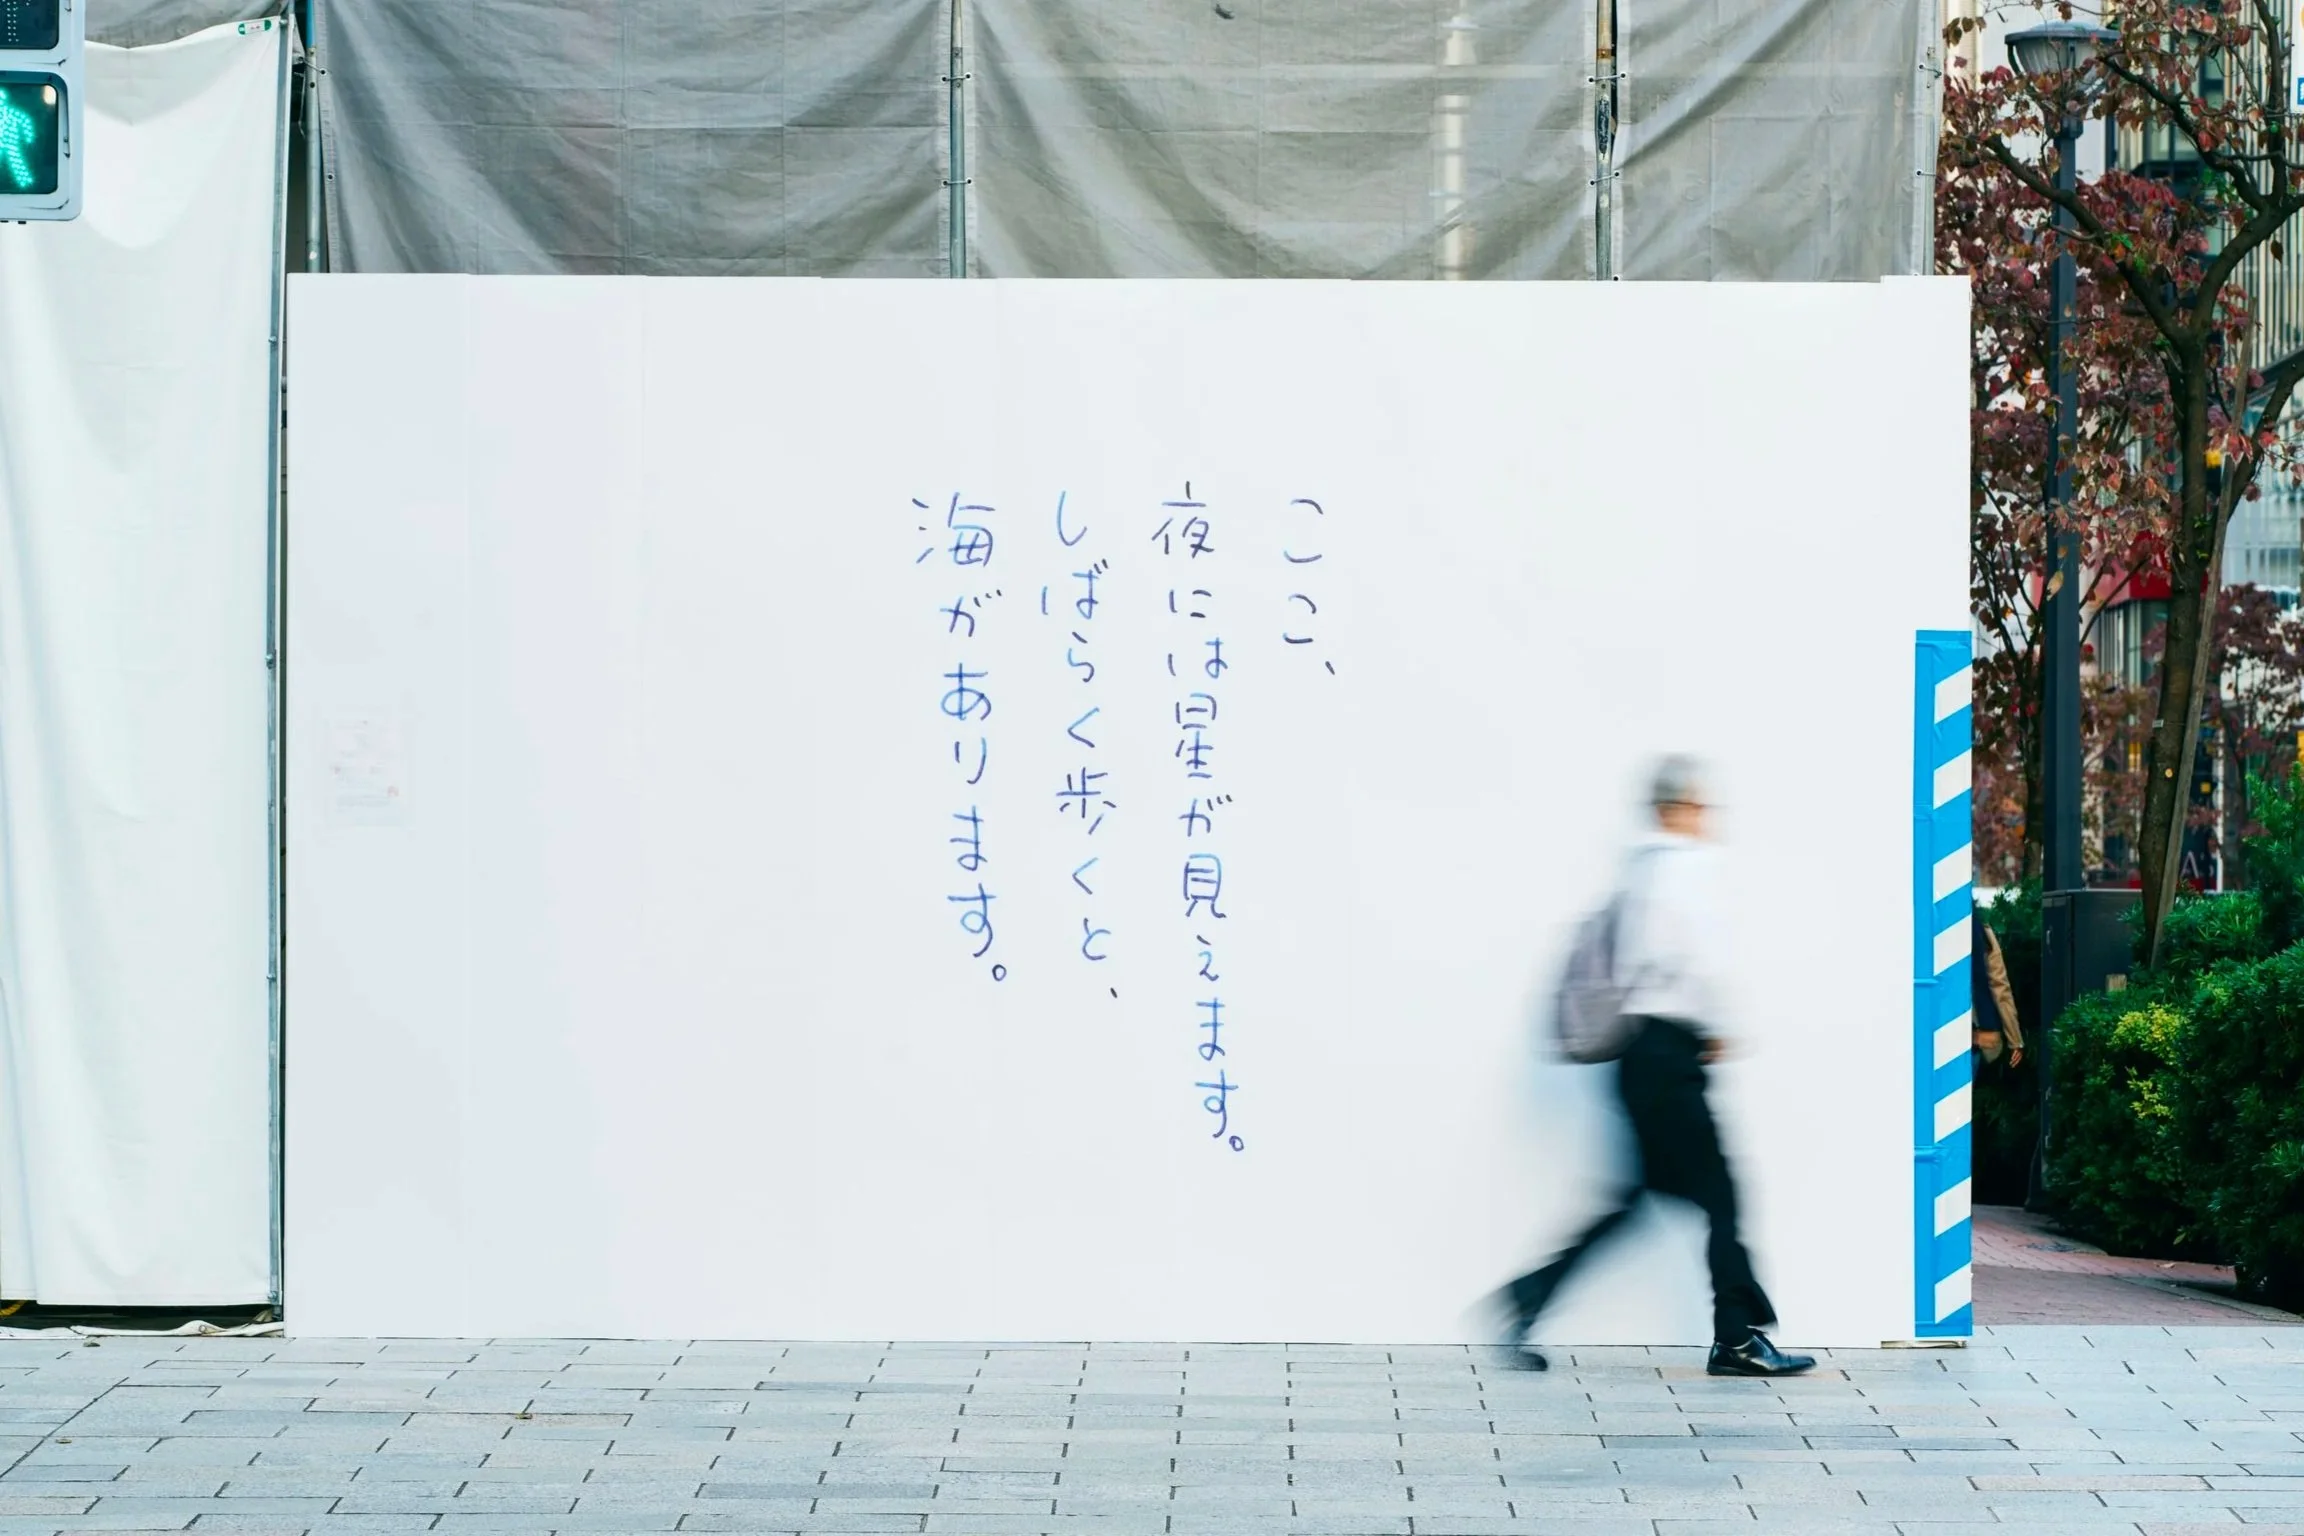 ここ、
夜には星が見えます。
しばらく歩くと、
海があります。